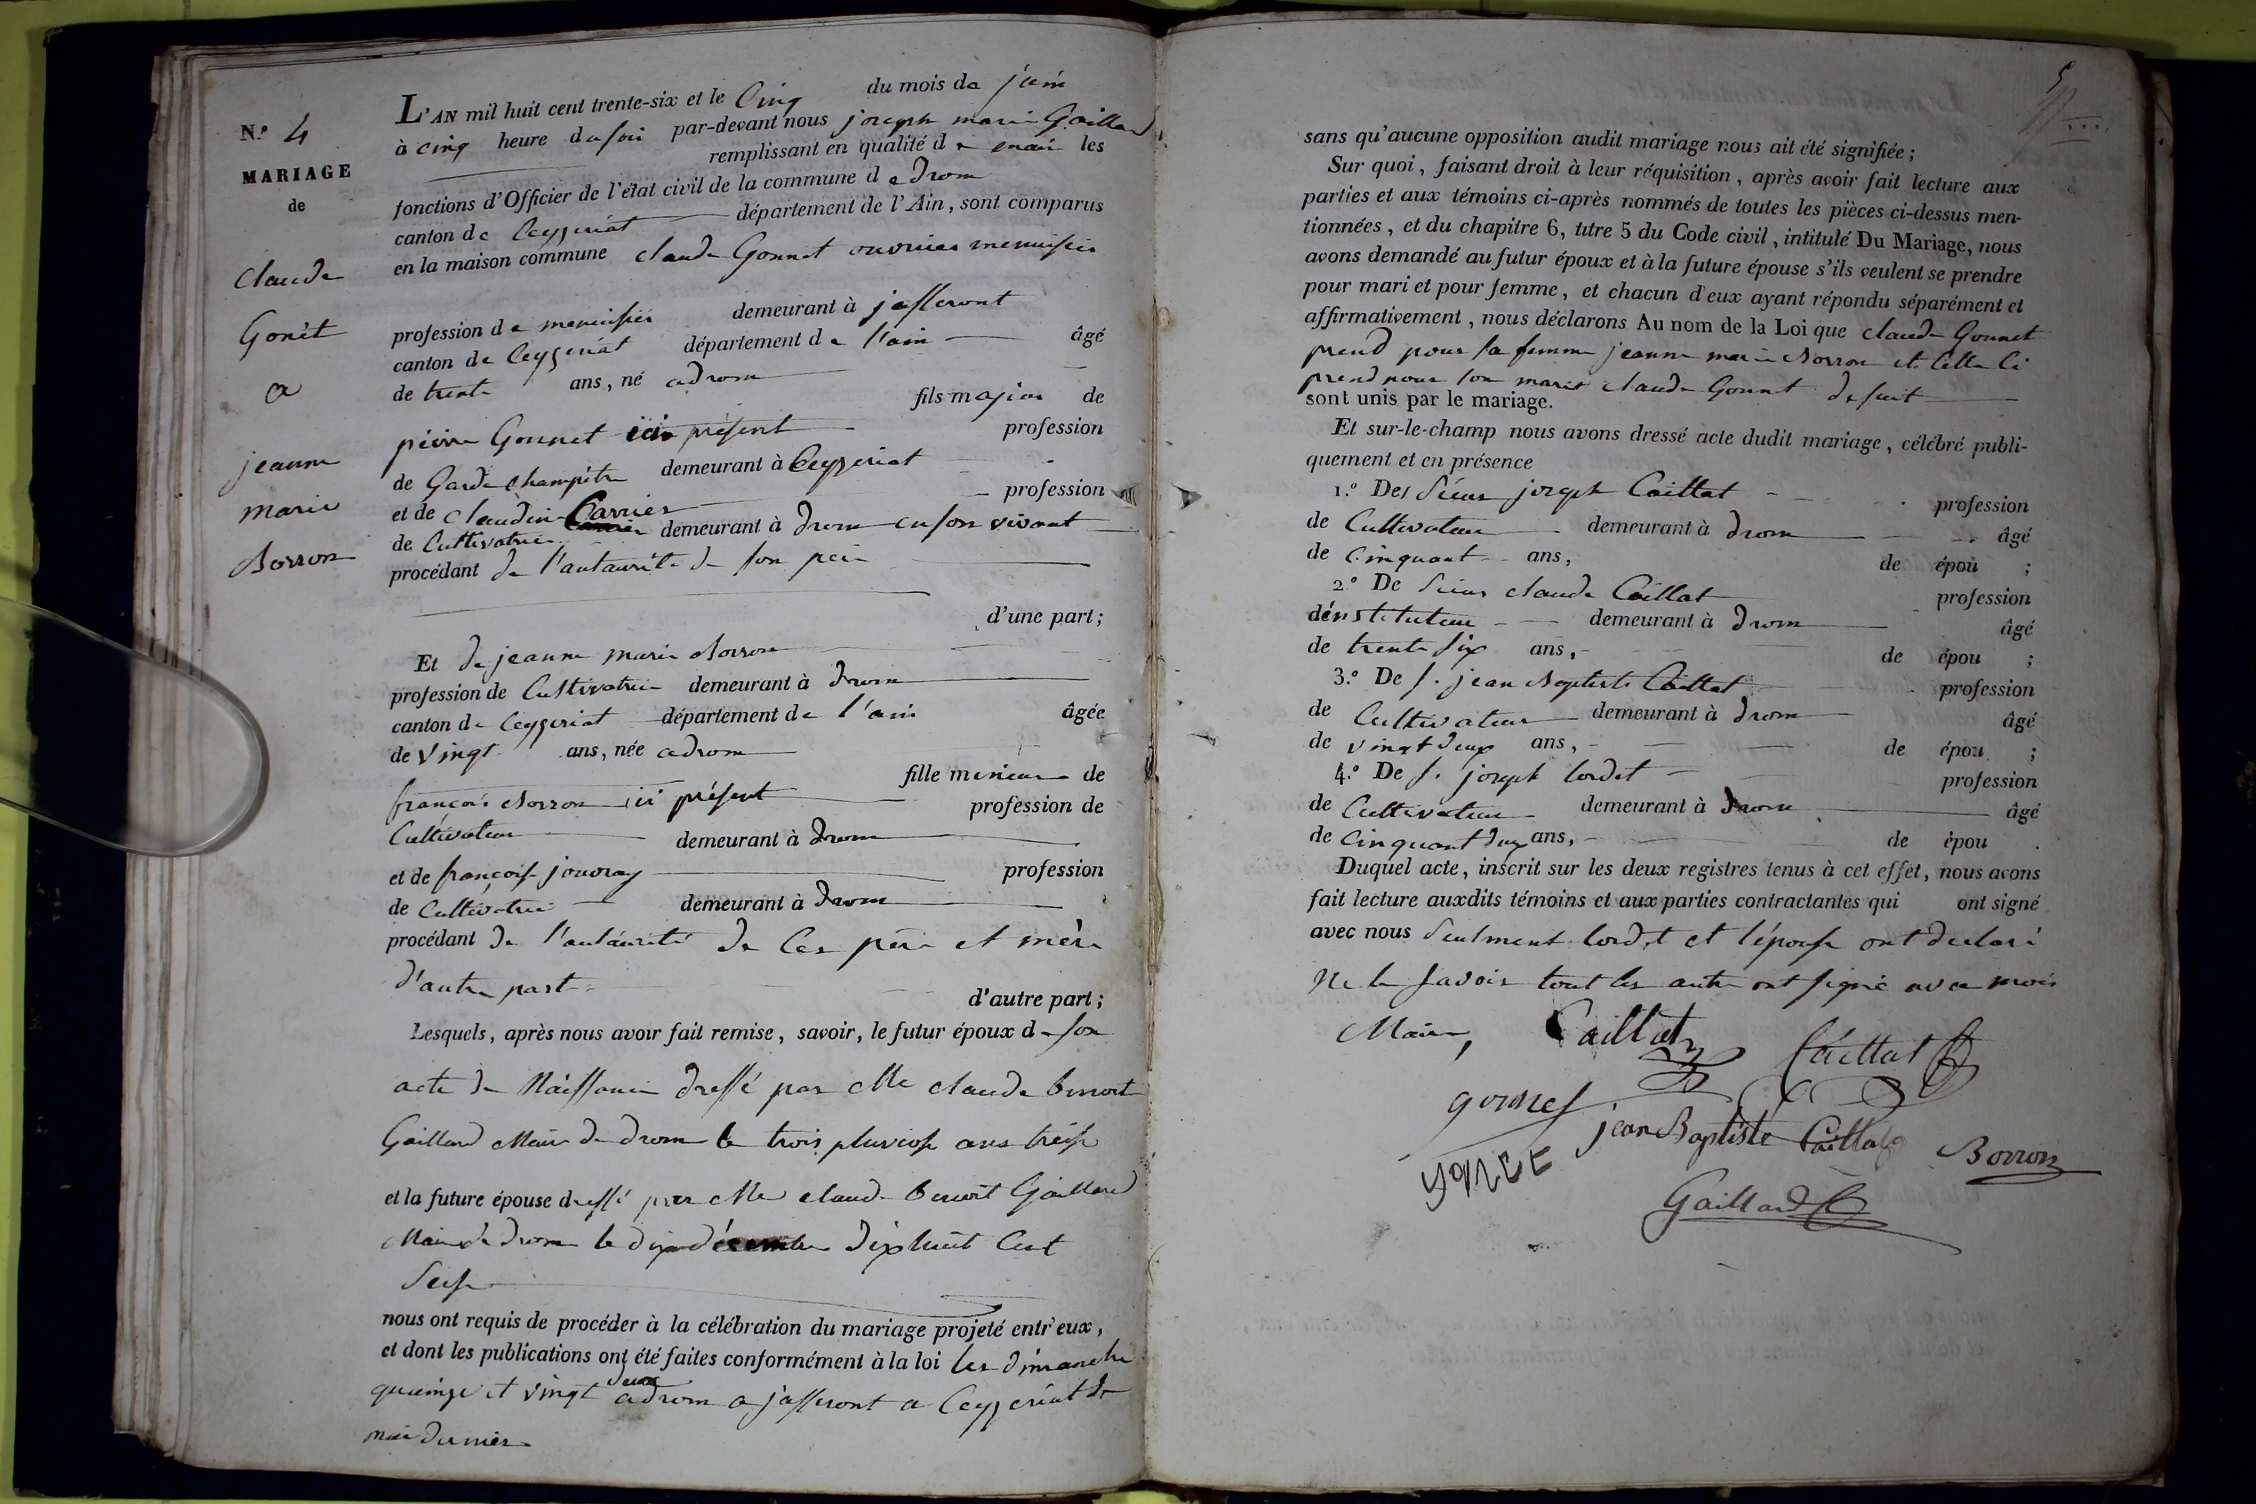 N.º 4
MARIAGE
de
Claude
Gonêt
a
jeanne
marie
Borron
L'AN mil huit cent trente-six et le Cinq du mois de juin
à cinq heure du soir par-devant nous joseph marie Gaillard
remplissant en qualité de mair les
fonctions d'Officier de l'état civil de la commune de drom
canton de Ceyzeriat département de l'Ain, sont comparus
en la maison commune Claude Gonnet ouvrier menuisier
profession de menuisier demeurant à jasseront
canton de Ceyzeriat département de l'ain âgé
de trente ans, né a drom
fils majeur de
pierre Gonnet ici présent profession
de Garde Champêtre demeurant à Ceyzeriat
et de Claudine Carrier profession
de Cultivatrice demeurant à drom en son vivant
procédant de l'autaurité de son père
d'une part;
Et de jeanne marie Borron
profession de Cultivatrice demeurant à drom
canton de Ceyzeriat département de l'ain âgée
de vingt ans, née a drom
fille mineure de
françois Borron ici présent profession de
Cultivateur demeurant à drom
et de françoise jouvray profession
de Cultivatrice demeurant à drom
procédant de l'autaurité de Ces père et mère
d'autre part
d'autre part;
Lesquels, après nous avoir fait remise, savoir, le futur époux de son
acte de Naissance dressé par Me Claude benoit
Gaillard Maire de drom le trois pluviose ans treise
et la future épouse dressé par Me Claude benoit Gaillard
Maire de drom le dix décembre dixhuit Cent
Seise
nous ont requis de procéder à la célébration du mariage projeté entr'eux,
et dont les publications ont été faites conformément à la loi les dimanche
quinze et vingt deux a drom a jasseront a Ceyzeriat de
mai dernier
5
sans qu'aucune opposition audit mariage nous ait été signifiée;
Sur quoi, faisant droit à leur réquisition, après avoir fait lecture aux
parties et aux témoins ci-après nommés de toutes les pièces ci-dessus men-
tionnées, et du chapitre 6, titre 5 du Code civil, intitulé Du Mariage, nous
avons demandé au futur époux et à la future épouse s'ils veulent se prendre
pour mari et pour femme, et chacun d'eux ayant répondu séparément et
affirmativement, nous déclarons Au nom de la Loi que Claude Gonnet
prend pour sa femme jeanne marie Borron et Celle Ci
prend pour son marit Claude Gonnet de suit
sont unis par le mariage.
Et sur-le-champ nous avons dressé acte dudit mariage, célébré publi-
quement et en présence
1.º Des Sieur joseph Caillat profession
de Cultivateur demeurant à drom âgé
de Cinquant ans, de épou ;
2.º De Sieur Claude Caillat profession
d'énstituteur demeurant à drom âgé
de trente six ans, de épou ;
3.º De s. jean Baptiste Caillat profession
de Cultivateur demeurant à drom âgé
de vingt deux ans, de épou ;
4.º De s. joseph lordet profession
de Cultivateur demeurant à drom âgé
de Cinquant deux ans, de épou .
Duquel acte, inscrit sur les deux registres tenus à cet effet, nous avons
fait lecture auxdits témoins et aux parties contractantes qui ont signé
avec nous Seulment lordet et l'épouse ont declaré
Ne le Savoir tout les autre ont signé avec mois
Maire,
Caillat
Caillat
gonnet
jean Baptiste Caillat
Borron
Gaillard